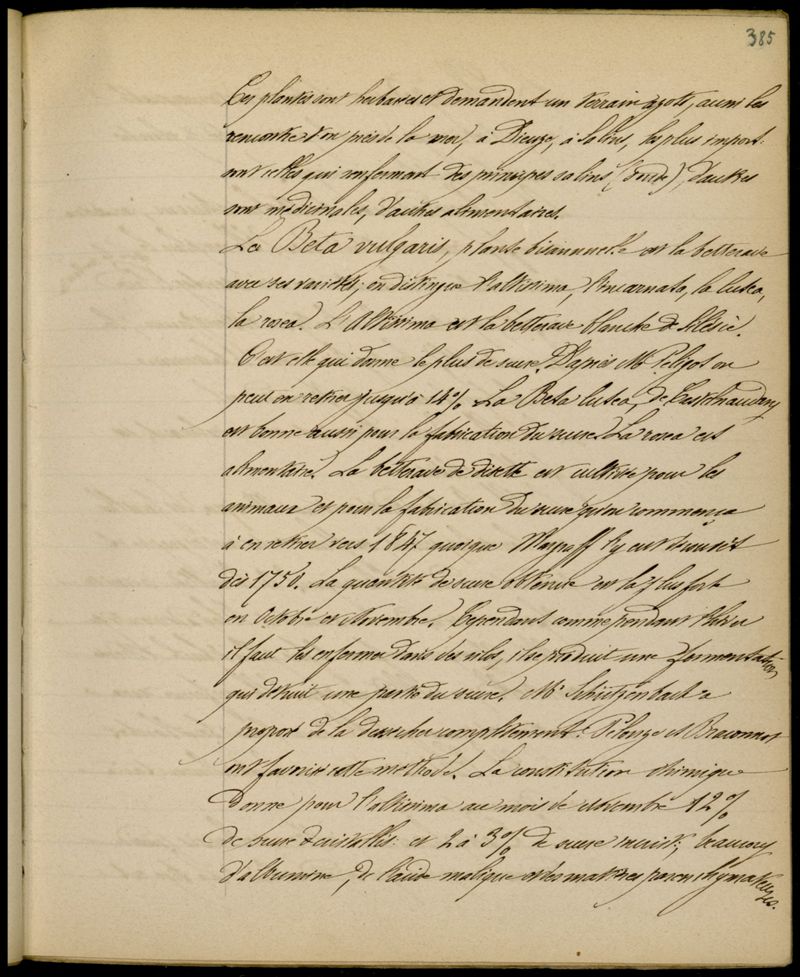 385
Ces plantes sont herbacées et demandent un terrain azoté, aussi les
rencontre t'on près de la mer, à Dieuze, à Salins, les plus import.
sont celles qui renferment des principes salins (soude), d'autres
sont médicinales, d'autres alimentaires.
La Beta vulgaris, plante bisannuelle est la betterave
avec ses variétés; on distingue l'altissima, l'incarnata, la lutea,
la rosea. L'altissima est la betterave blanche de Silésie.
C'est elle qui donne le plus de sucre. D'après Mr Peligot on
peut en retirer jusqu'à 14%. La Beta lutea, de Castelnaudary
est bonne aussi pour la fabrication du sucre. La rosea est
alimentaire. La betterave de disette est cultivée pour les
animaux et pour la fabrication du sucre qu'on commença
à en retirer vers 1847 quoique Margraff l'y eut
dès 1750. La quantité de sucre obtenue est la plus forte
en Octobre et Novembre. Cependant comme pendant l'hiver
il faut les enfermer dans des silos, il se produit une fermentation
qui détruit une partie du sucre. Mr Schützenbach a
proposé de la dessécher complètement. Pelouze et Braconnot
ont favorisé cette méthode. La constitution chimique
donne pour l'altissima au mois de Novembre 12%
de sucre cristallis. et 2 à 3% de sucre incrist.; beaucoup
d'albumine, de l'acide malique et des matières parenchymateuses.